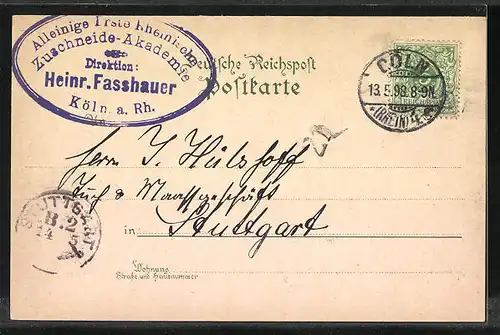 Alleinige Erste Rheinische
Zuschneide-Akademie
Direktion:
Heinr. Fasshauer
Köln a. Rh.
Deutsche Reichspost
Postkarte
CÖLN
13.5.98. 8-9N.
(RHEIN)
Herrn J. Hülshoff
Tuch & Maassgeschäft
in Stuttgart
STUTTGART
Wohnung
Straße und Hausnummer